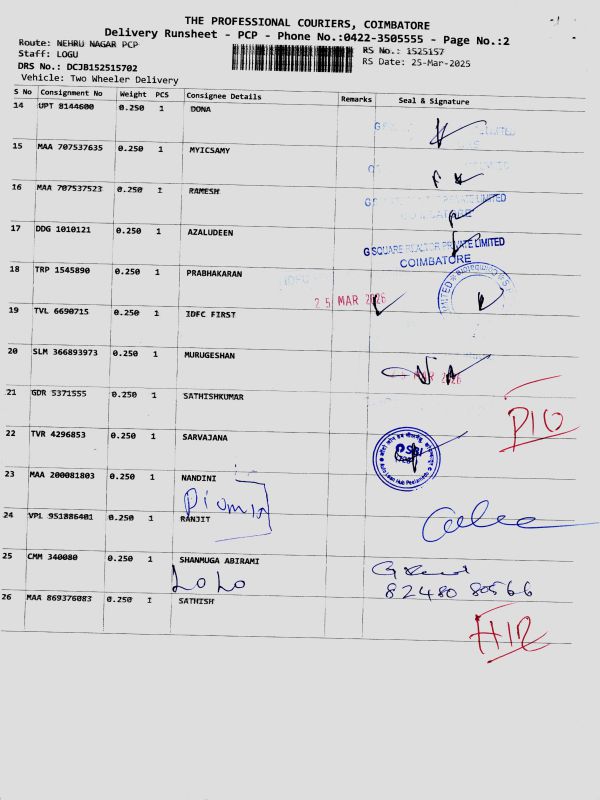 THE PROFESSIONAL COURIERS, COIMBATORE
Delivery Runsheet - PCP - Phone No.:0422-3505555 - Page No.:2
Route: NEHRU NAGAR PCP
RS No.: 1525157
Staff: LOGU
RS Date: 25-Mar-2025
DRS No.: DCJB152515702
Vehicle: Two Wheeler Delivery
S No Consignment No Weight PCS Consignee Details Remarks Seal & Signature
14 UPT 8144600 0.250 1 DONA
15 MAA 707537635 0.250 1 MYICSAMY
16 MAA 707537523 0.250 1 RAMESH
17 DDG 1010121 0.250 1 AZALUDEEN
G SQUARE REALTOR PRIVATE LIMITED
COIMBATORE
18 TRP 1545890 0.250 1 PRABHAKARAN
25 MAR 2026
19 TVL 6690715 0.250 1 IDFC FIRST
20 SLM 366893973 0.250 1 MURUGESHAN
21 GDR 5371555 0.250 1 SATHISHKUMAR
22 TVR 4296853 0.250 1 SARVAJANA
SBI
23 MAA 200081803 0.250 1 NANDINI
24 VPL 951886401 0.250 1 RANJIT
25 CMM 340080 0.250 1 SHANMUGA ABIRAMI
82480 80566
26 MAA 869376083 0.250 1 SATHISH